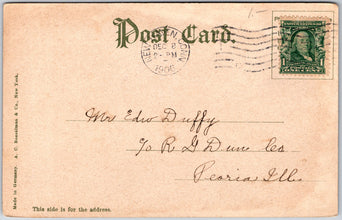 Post Card.
NEW HAVEN, CONN
DEC 8
2-PM
1906
1
Mr Edw Duffy
c/o R G Dun Co
Peoria Ill.
Made in Germany. A. C. Bosselman & Co., New York.
This side is for the address.